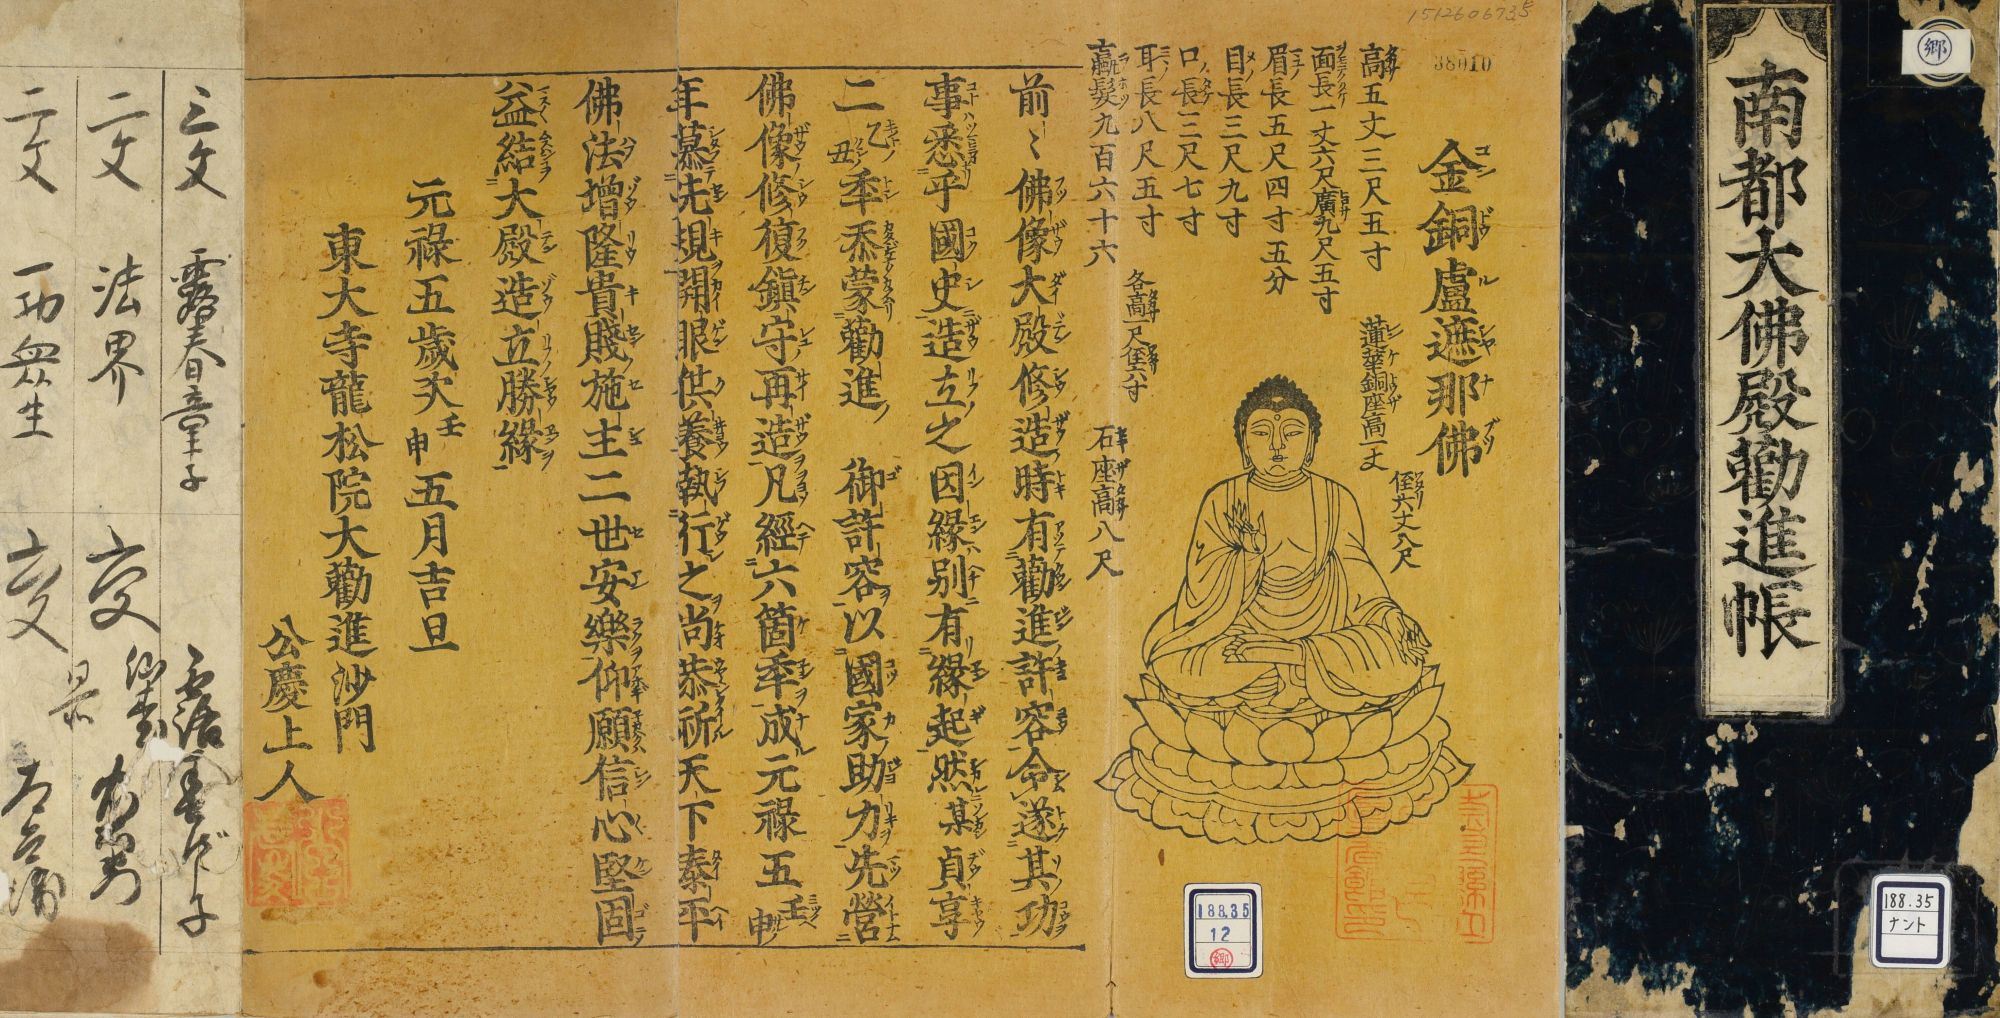 南都大佛殿勸進帳
郷
188.35
ナント
1512606735
38010
金銅盧遮那佛
高五丈三尺五寸
面長一丈六尺廣九尺五寸
眉長五尺四寸五分
目長三尺九寸
口長三尺七寸
耳長八尺五寸
螺髮九百六十六
各高一尺徑六寸
蓮華銅座高一丈
徑六丈八尺
石座高八尺
188.35
12
郷
前〻佛像大殿修造時有勸進許容令遂其功
事悉乎國史造立之因緣別有緣起然某貞享
二乙丑年忝蒙勸進御許容以國家助力先營
佛像修復鎭守再造凡經六箇年成元禄五壬申
年慕先規開眼供養執行之尚恭祈天下泰平
佛法增隆貴賤施主二世安樂仰願信心堅固
益結大殿造立勝緣
元禄五歲次壬申五月吉旦
東大寺龍松院大勸進沙門
公慶上人
三文 露春童子
二文 法界
二文 一切衆生